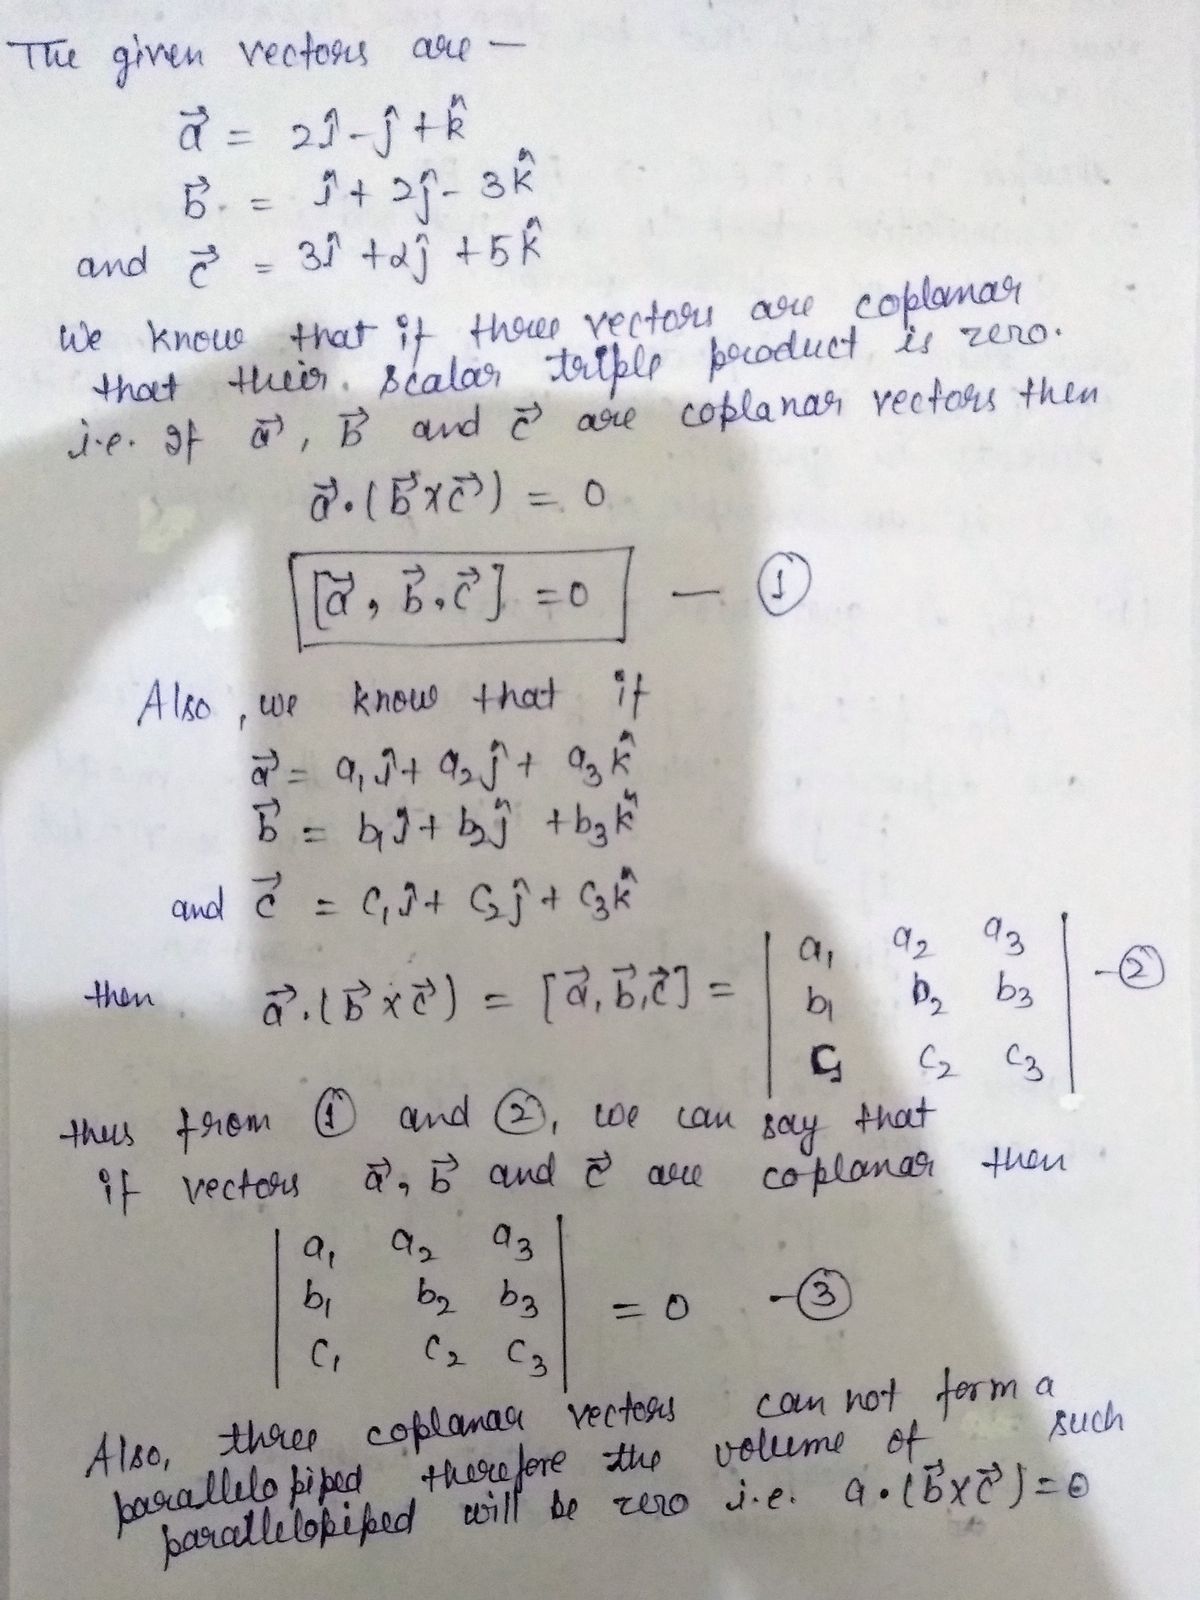 The given vectors are —
a⃗ = 2î - ĵ + k̂
b⃗ = î + 2ĵ - 3k̂
and c⃗ = 3î + 2ĵ + 5k̂
We know that if three vectors are coplanar
that their scalar triple product is zero.
i.e. If a⃗, b⃗ and c⃗ are coplanar vectors then
a⃗.(b⃗×c⃗) = 0
[a⃗, b⃗, c⃗] = 0 — ①
Also, we know that if
a⃗ = a₁î + a₂ĵ + a₃k̂
b⃗ = b₁î + b₂ĵ + b₃k̂
and c⃗ = c₁î + c₂ĵ + c₃k̂
then a⃗.(b⃗×c⃗) = [a⃗, b⃗, c⃗] = | a₁ a₂ a₃ | - ②
| b₁ b₂ b₃ |
| c₁ c₂ c₃ |
thus from ① and ②, we can say that
if vectors a⃗, b⃗ and c⃗ are coplanar then
| a₁ a₂ a₃ |
| b₁ b₂ b₃ | = 0 - ③
| c₁ c₂ c₃ |
Also, three coplanar vectors can not form a
parallelopiped therefore the volume of such
parallelopiped will be zero i.e. a.(b⃗×c⃗) = 0